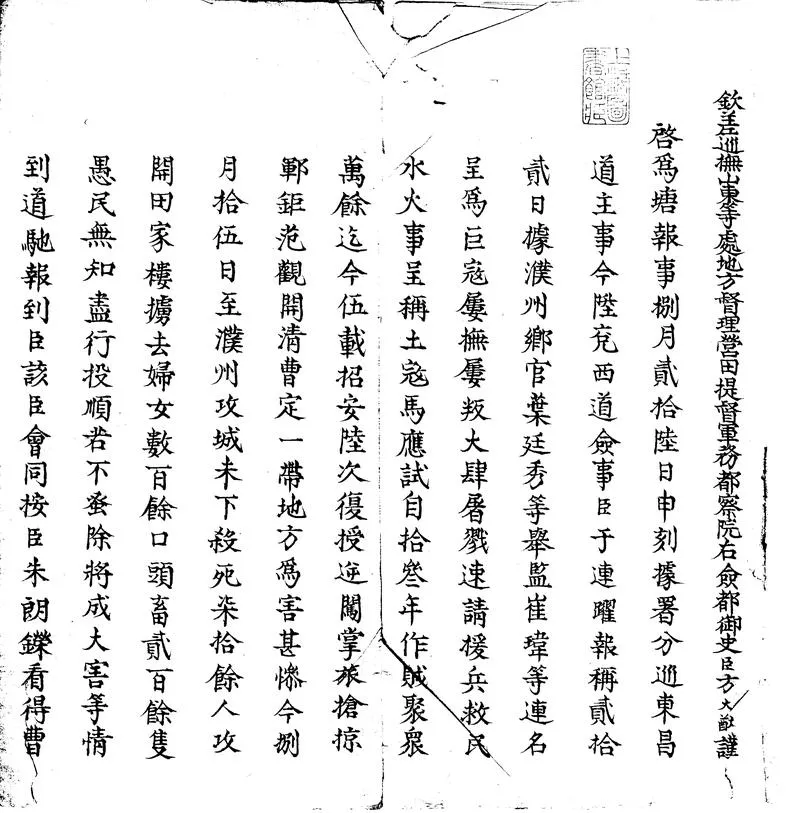 欽差巡撫山東等處地方督理營田提督軍務都察院右僉都御史臣方大猷謹
啓為塘報事捌月貳拾陸日申刻據署分巡東昌
道主事今陞兗西道僉事臣于連躍報稱貳拾
貳日據濮州鄉官葉廷秀等舉監崔瑋等連名
呈為巨寇屢撫屢叛大肆屠戮速請援兵救民
水火事呈稱土寇馬應試自拾叄年作賊聚衆
萬餘迄今伍載招安陸次復授逆闖掌旅搶掠
鄆鉅范觀開清曹定一帶地方為害甚慘今捌
月拾伍日至濮州攻城未下殺死柒拾餘人攻
開田家樓擄去婦女數百餘口頭畜貳百餘隻
愚民無知盡行投順若不蚤除將成大害等情
到道馳報到臣該臣會同按臣朱朗鑅看得曹